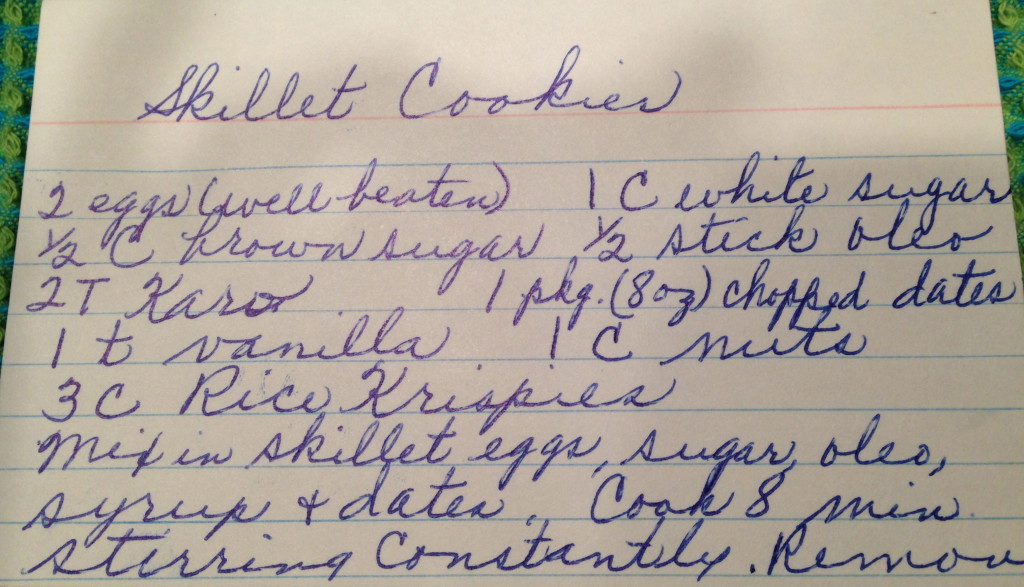 Skillet Cookies
2 eggs (well beaten) 1 C white sugar
1/2 C brown sugar 1/2 stick oleo
2 T Karo 1 pkg. (8 oz) chopped dates
1 t vanilla 1 C nuts
3 C Rice Krispies
Mix in skillet eggs, sugar, oleo,
syrup + dates. Cook 8 min.
stirring constantly. Remov